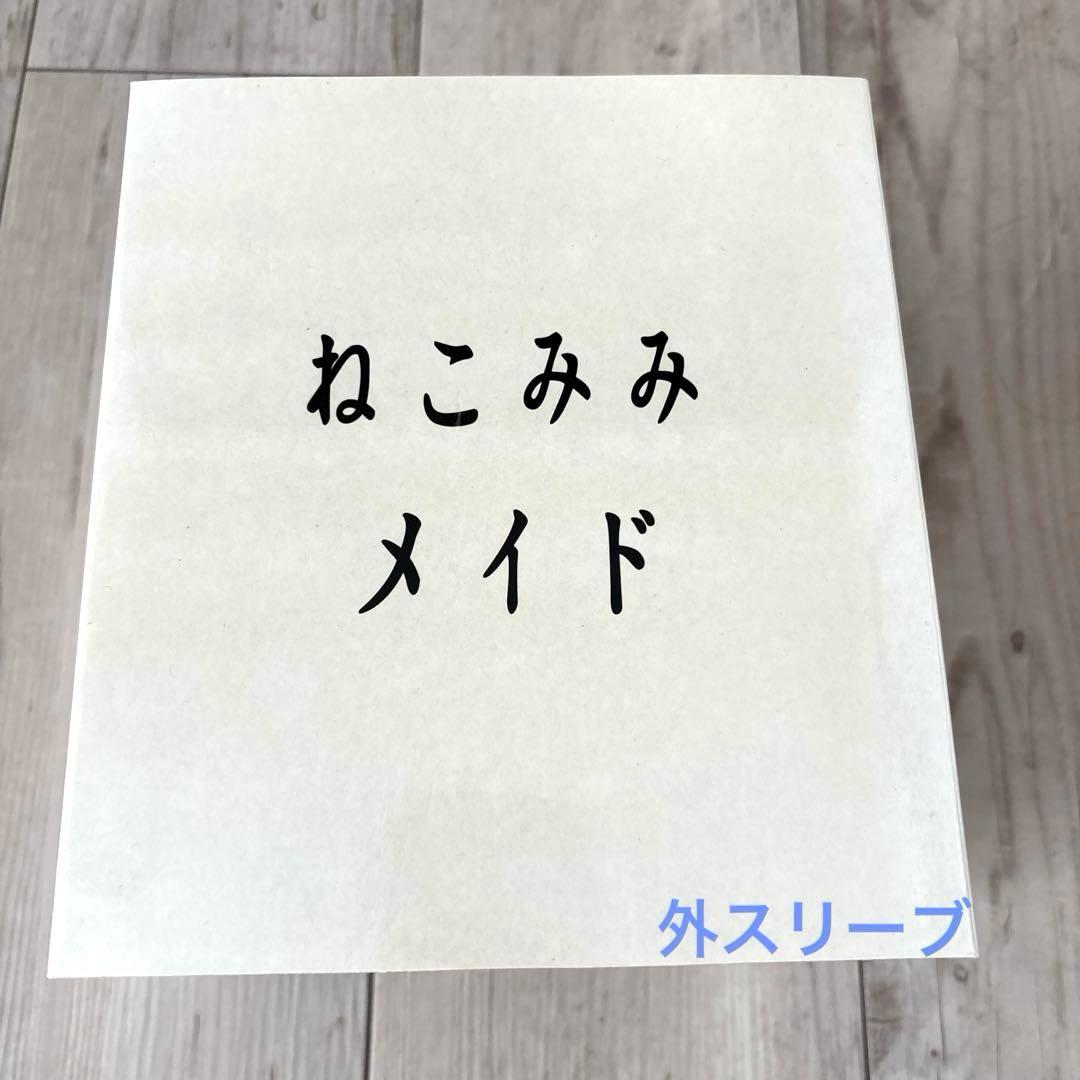 ねこみみ
メイド
外スリーブ